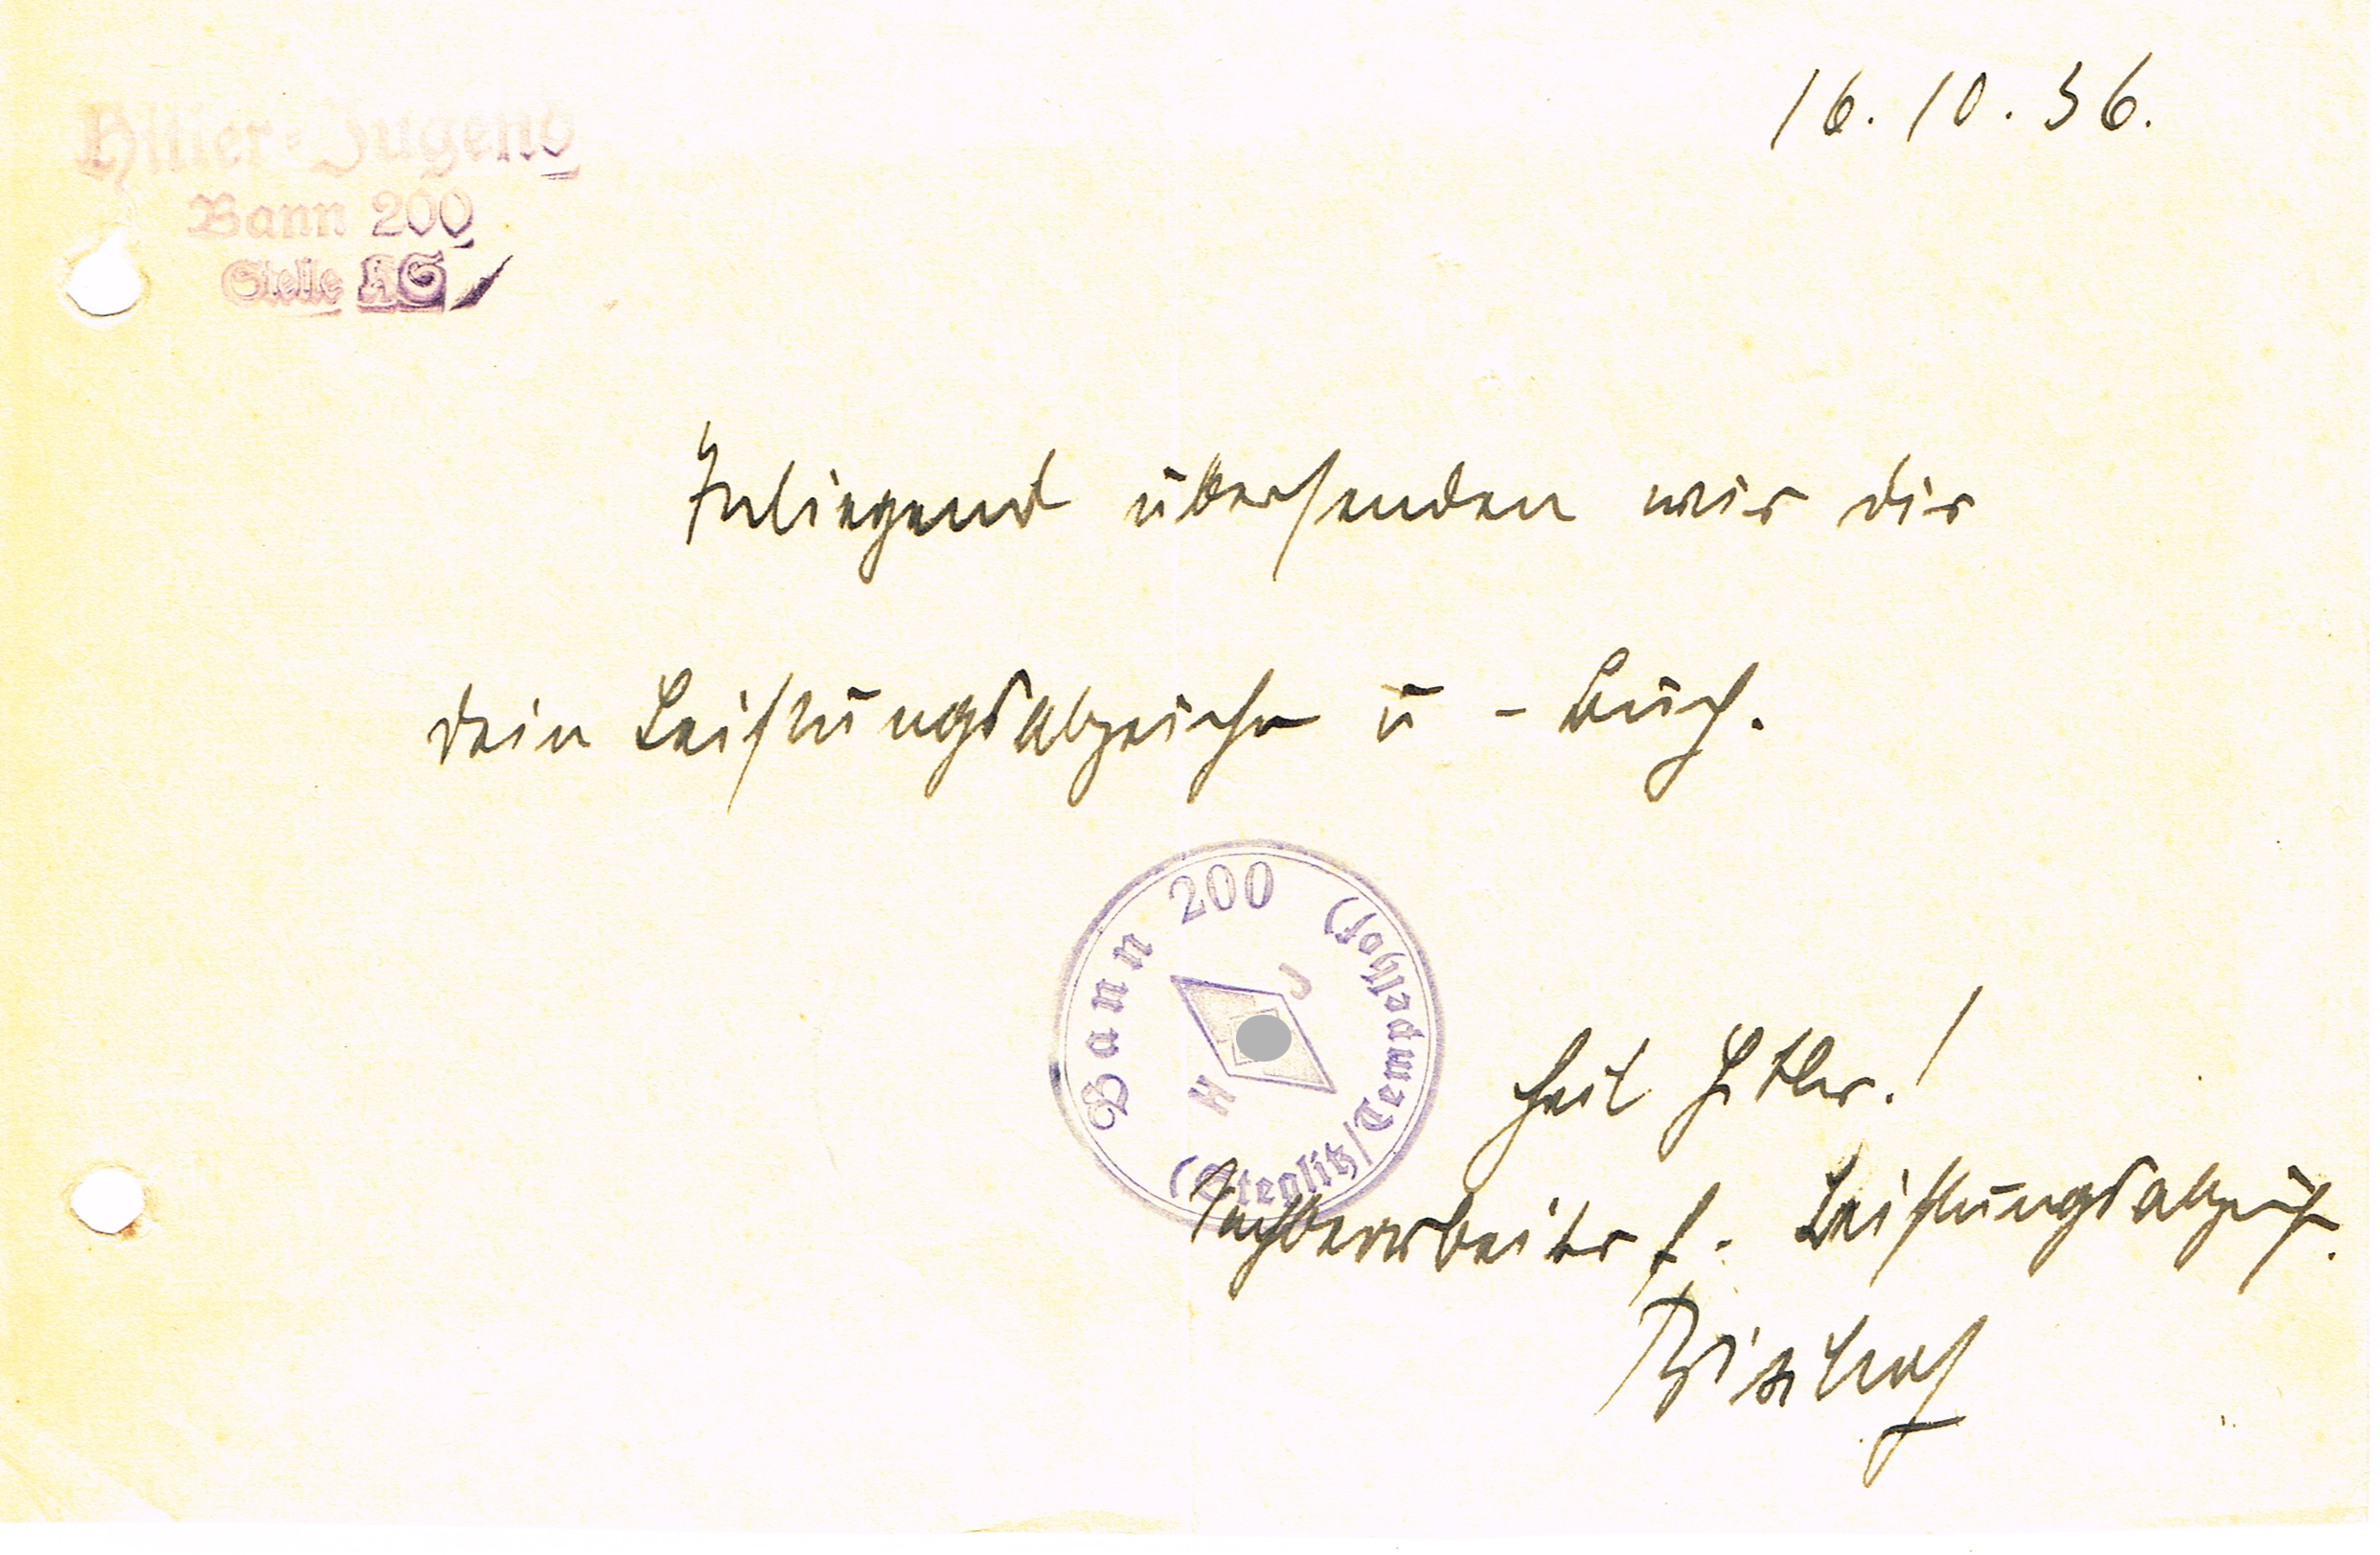 16.10.36.
Hitler-Jugend
Bann 200
Stelle KS
Inliegend übersenden wir dir
dein Leistungsabzeichen u -buch.
Bann 200
(Steglitz/Tempelhof)
H J
Heil Hitler!
Sachbearbeiter f. Leistungsabzeich.